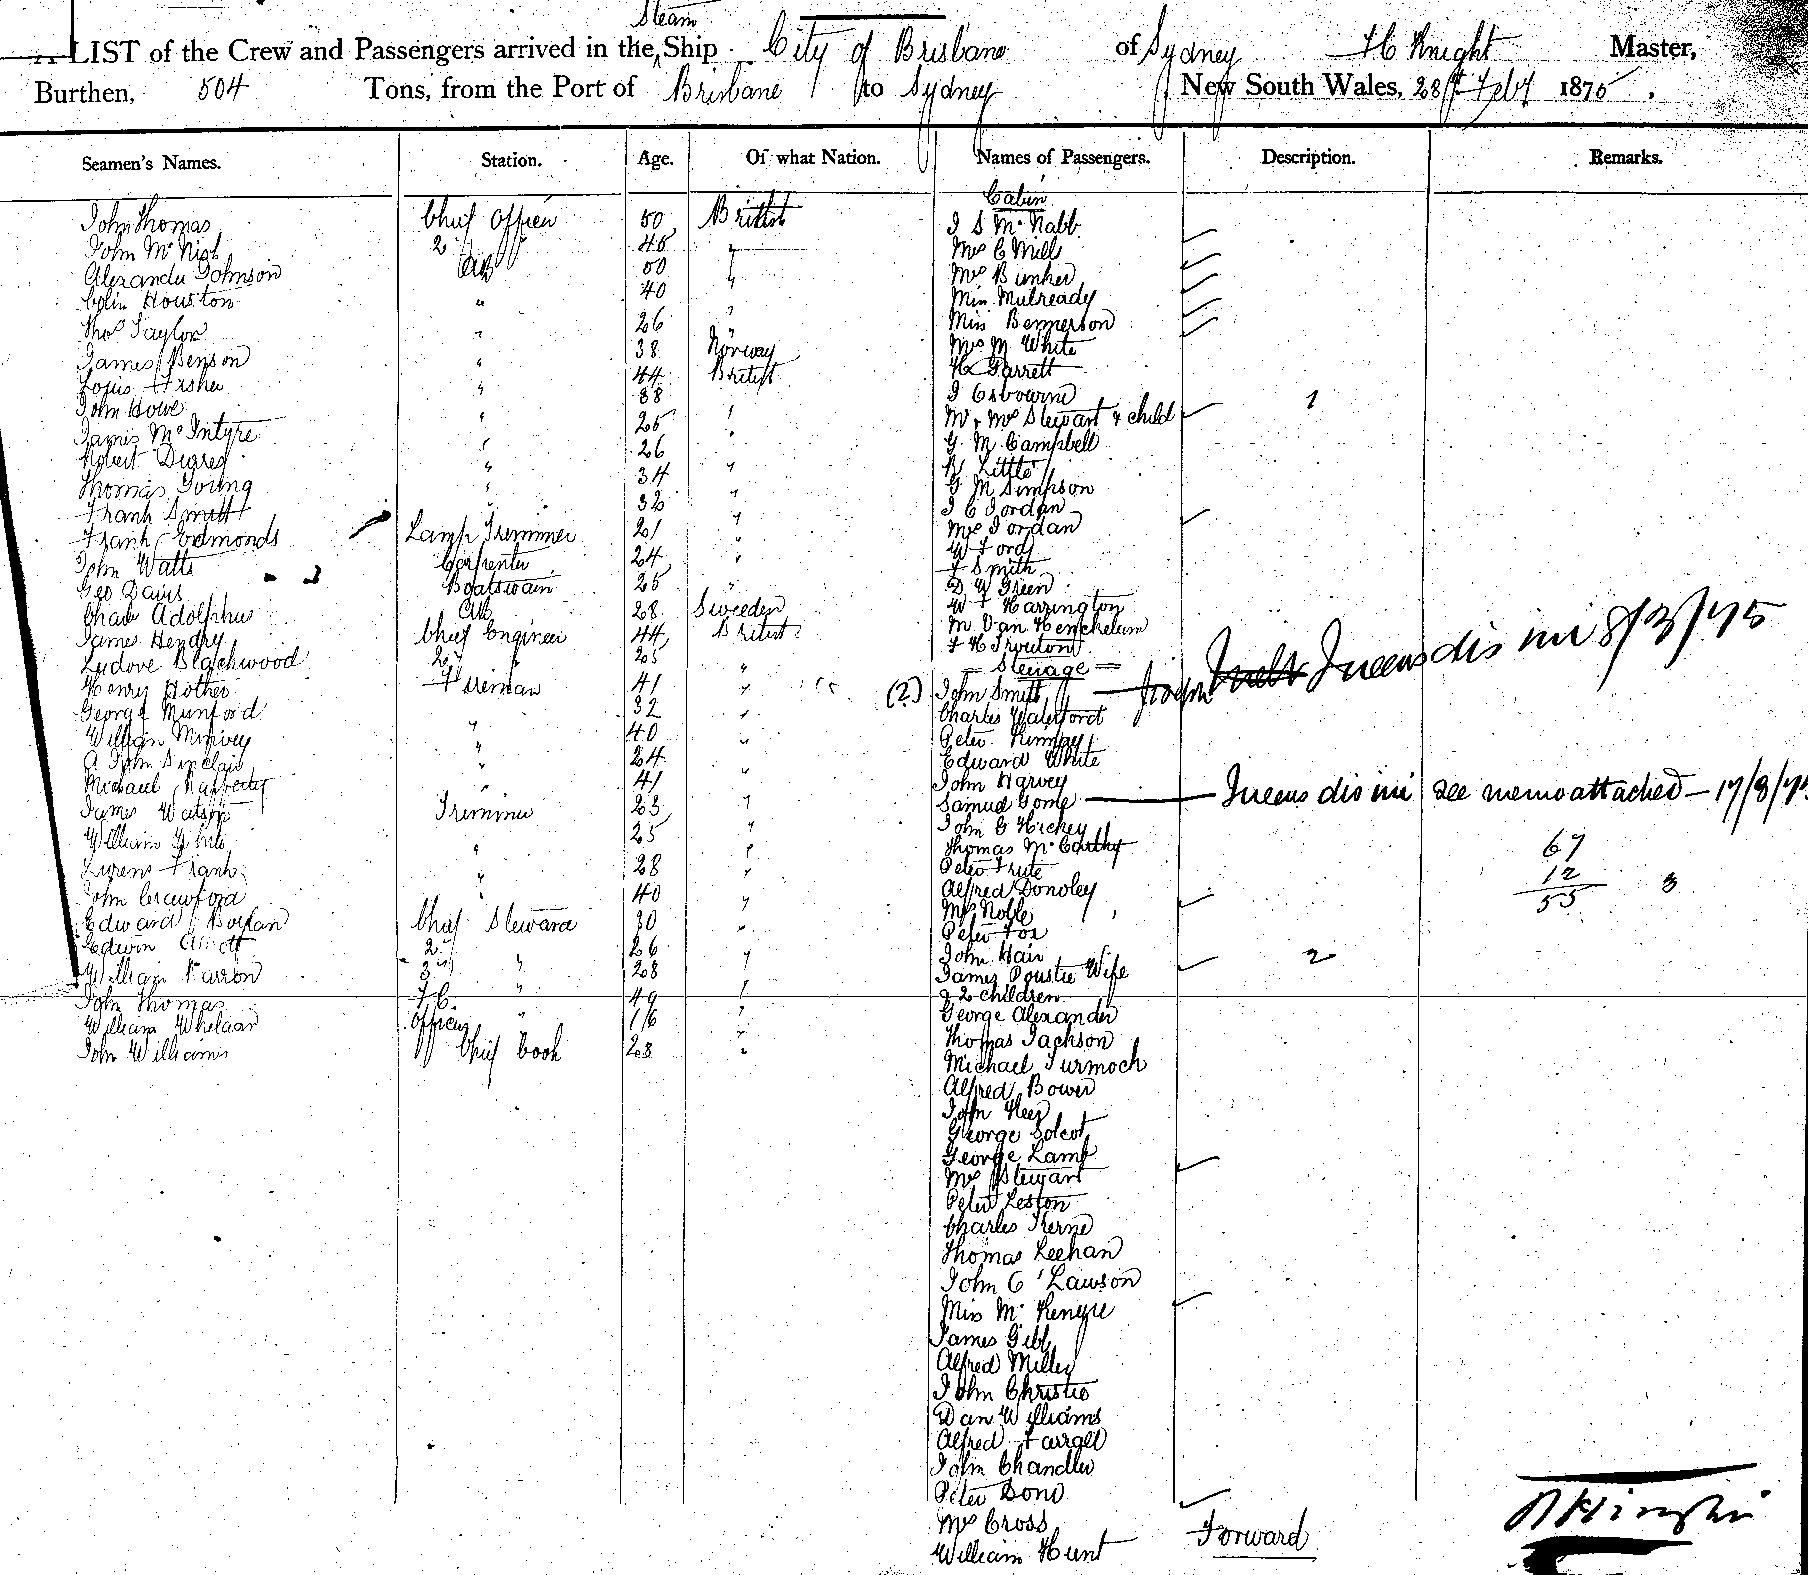 Steam
LIST of the Crew and Passengers arrived in the Ship City of Brisbane of Sydney H Knight Master,
Burthen, 504 Tons, from the Port of Brisbane to Sydney New South Wales, 28th Feby 1875.
Seamen's Names. Station. Age. Of what Nation. Names of Passengers. Description. Remarks.
Cabin
John Thomas Chief Officer 50 British J S McNabb
John McNish 2 " 45 " Mrs C Mill
Alexander Johnson AB 50 " Mrs Bunker
Colin Houston " 40 " Miss Mulready
Thos Taylor " 26 " Miss Bennerson
James Benson " 38 Norway Mrs M White
Louis Fisher " 44 British H Garrett
John Howe " 38 " J Osbourne 1
James McIntyre " 25 " Mr & Mrs Stewart & child
Robert " 26 " G. M. Campbell
Thomas Young " 34 " R Little
Frank Smith " 32 " G M Simpson
J C Jordan
Frank Edmonds Lamp Trimmer 21 " Mrs Jordan
John Watts Carpenter 24 " W Ford
Geo Davis Boatswain 25 " F Smith
D W Green
Chas Adolphus AB 28 Sweeden W F Harrington
James Hendry Chief Engineer 44 British M Van Henchelum
Ludove Blackwood 2nd " 25 " F H Trouton
= Steerage =
Henry Hother Fireman 41 " (2.) John Smith Queens dis mi 8/3/75
George Munford " 32 " Charles Waterford
William " 40 " Peter
A John Sinclair " 24 " Edward White
Michael Rafferty " 41 " John Harvey
James Watson Trimmer 23 " Samuel Gome Queens dis mi see memo attached - 17/8/75
William White " 25 " John G Hickey
Thomas McCarthy 67
Frank " 28 " Peter 12
John Crawford " 40 " Alfred Donoley 55 3
Mrs Noble
Edward Boylan Chief Steward 30 " Peter Fox
Edwin 2nd " 26 " John Hair
William Farron 3rd " 28 " James Poustie Wife 2
John Thomas F.C. " 49 " & 2 children
William Whelaar Officers " 16 " George Alexander
John Williams Chief Cook 28 " Thomas Jackson
Michael Turmoch
Alfred Bower
John
George Solcot
George Lamb
Mrs Stewart
Peter Leston
Charles Kerne
Thomas Leehan
John C'Lawson
Miss McKenzie
James Gibb
Alfred Miller
John Christie
Dan Williams
Alfred Farrell
John Chandler
Peter Bond
Mrs Cross
William Hunt Forward